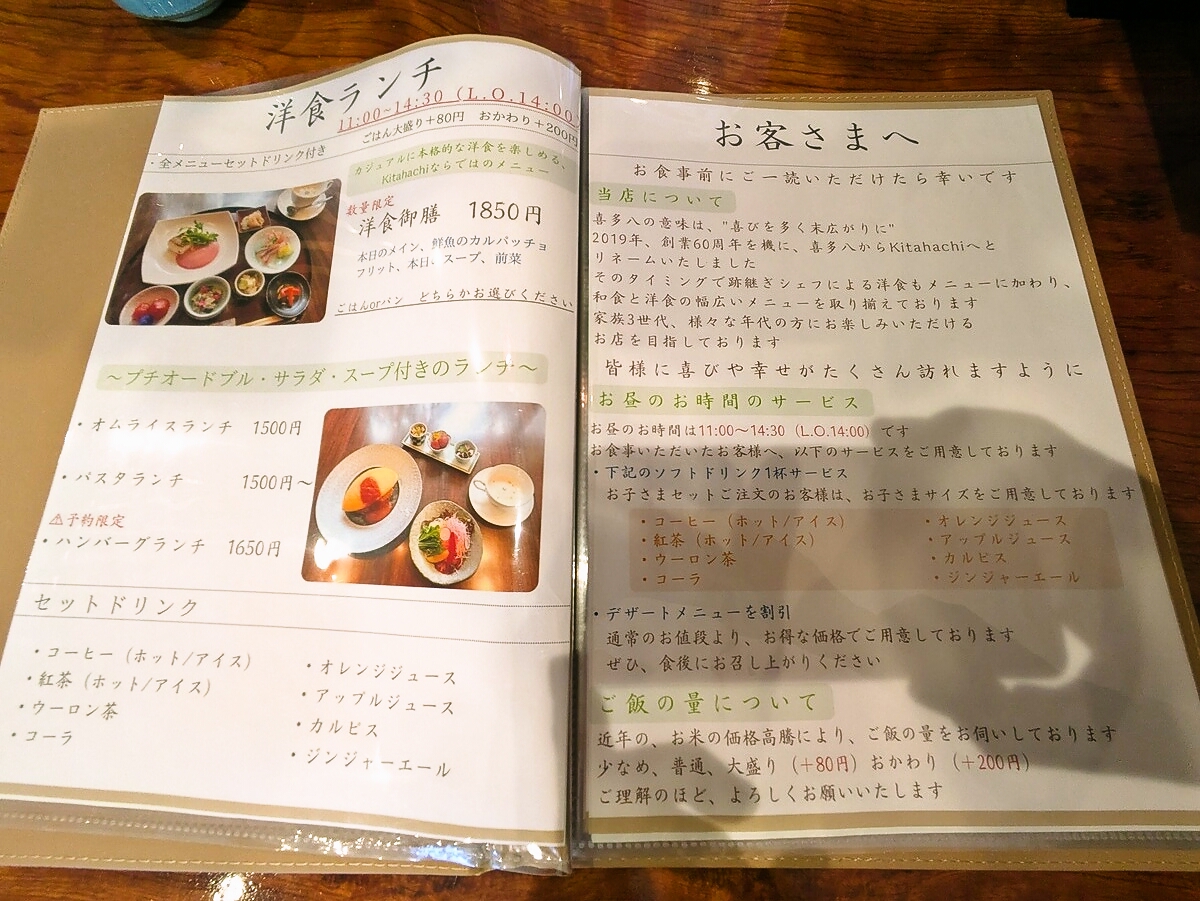 洋食ランチ
11:00~14:30（L.O.14:00）
ごはん大盛り＋80円　おかわり＋200円
・全メニューセットドリンク付き
カジュアルに本格的な洋食を楽しめる、
Kitahachiならではのメニュー
数量限定
洋食御膳　1850円
本日のメイン、鮮魚のカルパッチョ
フリット、本日、スープ、前菜
ごはんorパン　どちらかお選びください
～プチオードブル・サラダ・スープ付きのランチ～
・オムライスランチ　1500円
・パスタランチ　1500円～
⚠予約限定
・ハンバーグランチ　1650円
セットドリンク
・コーヒー（ホット/アイス）
・紅茶（ホット/アイス）
・ウーロン茶
・コーラ
・オレンジジュース
・アップルジュース
・カルピス
・ジンジャーエール
お客さまへ
お食事前にご一読いただけたら幸いです
当店について
喜多八の意味は、"喜びを多く末広がりに"
2019年、創業60周年を機に、喜多八からKitahachiへと
リネームいたしました
そのタイミングで跡継ぎシェフによる洋食もメニューに加わり、
和食と洋食の幅広いメニューを取り揃えております
家族3世代、様々な年代の方にお楽しみいただける
お店を目指しております
皆様に喜びや幸せがたくさん訪れますように
お昼のお時間のサービス
お昼のお時間は11:00～14:30（L.O.14:00）です
お食事いただいたお客様へ、以下のサービスをご用意しております
・下記のソフトドリンク1杯サービス
お子さまセットご注文のお客様は、お子さまサイズをご用意しております
・コーヒー（ホット/アイス）
・紅茶（ホット/アイス）
・ウーロン茶
・コーラ
・オレンジジュース
・アップルジュース
・カルピス
・ジンジャーエール
・デザートメニューを割引
通常のお値段より、お得な価格でご用意しております
ぜひ、食後にお召し上がりください
ご飯の量について
近年の、お米の価格高騰により、ご飯の量をお伺いしております
少なめ、普通、大盛り（＋80円）おかわり（＋200円）
ご理解のほど、よろしくお願いいたします